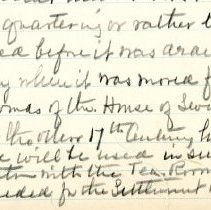 quartering or rather b
ed before it was
y when it was moved f
omas of the House of Sev
the other 17th Century h
e will be used in
with the Tea Room
eded for the Settlement